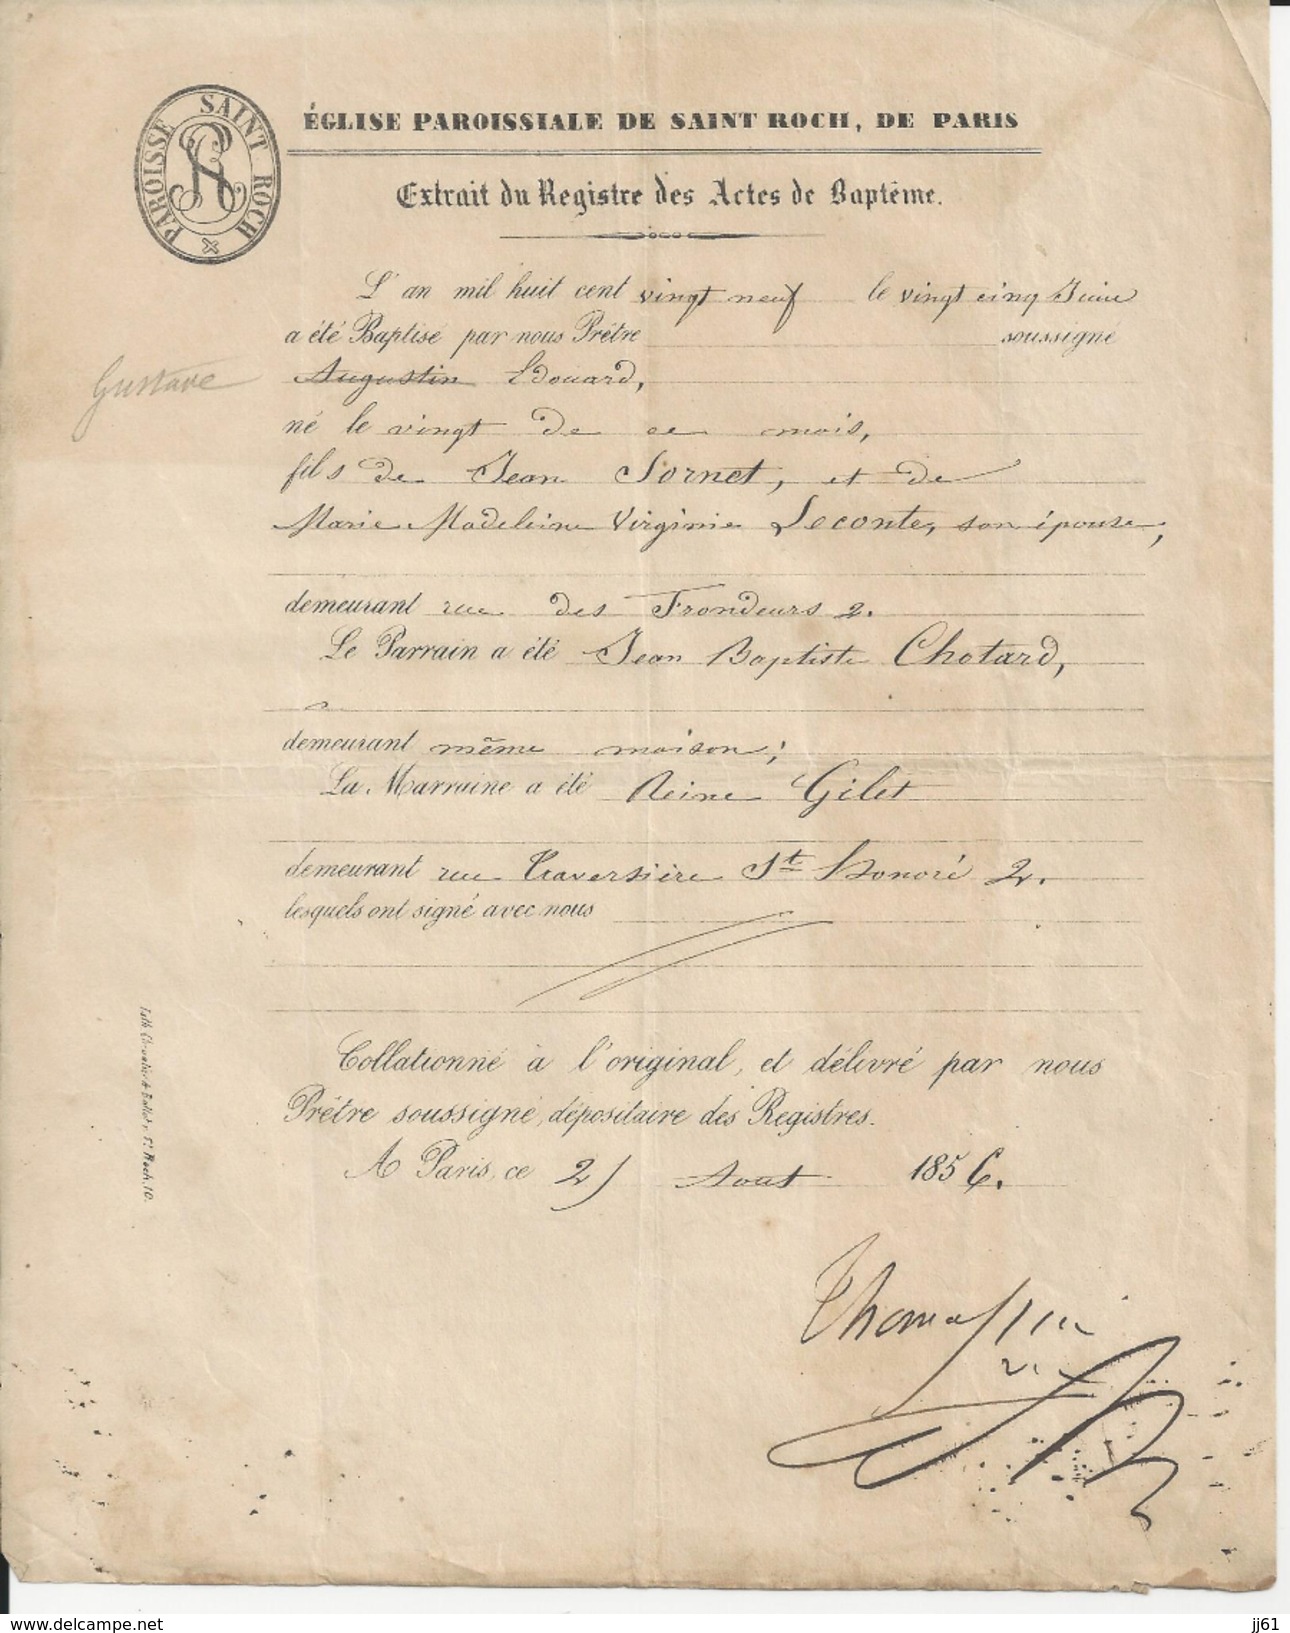 PAROISSE SAINT ROCH
SR
ÉGLISE PAROISSIALE DE SAINT ROCH, DE PARIS
Extrait du Registre des Actes de Baptême.
L'an mil huit cent vingt neuf le vingt cinq Juin
a été Baptisé par nous Prêtre soussigné
Gustave
Augustin Edouard,
né le vingt de ce mois,
fils de Jean Sornet, et de
Marie Madeleine Virginie Leconte, son épouse,
demeurant rue des Frondeurs 2.
Le Parrain a été Jean Baptiste Chotard,
demeurant même maison;
La Marraine a été Reine Gilet
demeurant rue Traversière St Honoré 2.
lesquels ont signé avec nous
Collationné à l'original, et délivré par nous
Prêtre soussigné, dépositaire des Registres.
A Paris, ce 2 Aout 1856.
Thomassin
Lith. r. St Roch, 10.
www.delcampe.net
jj61